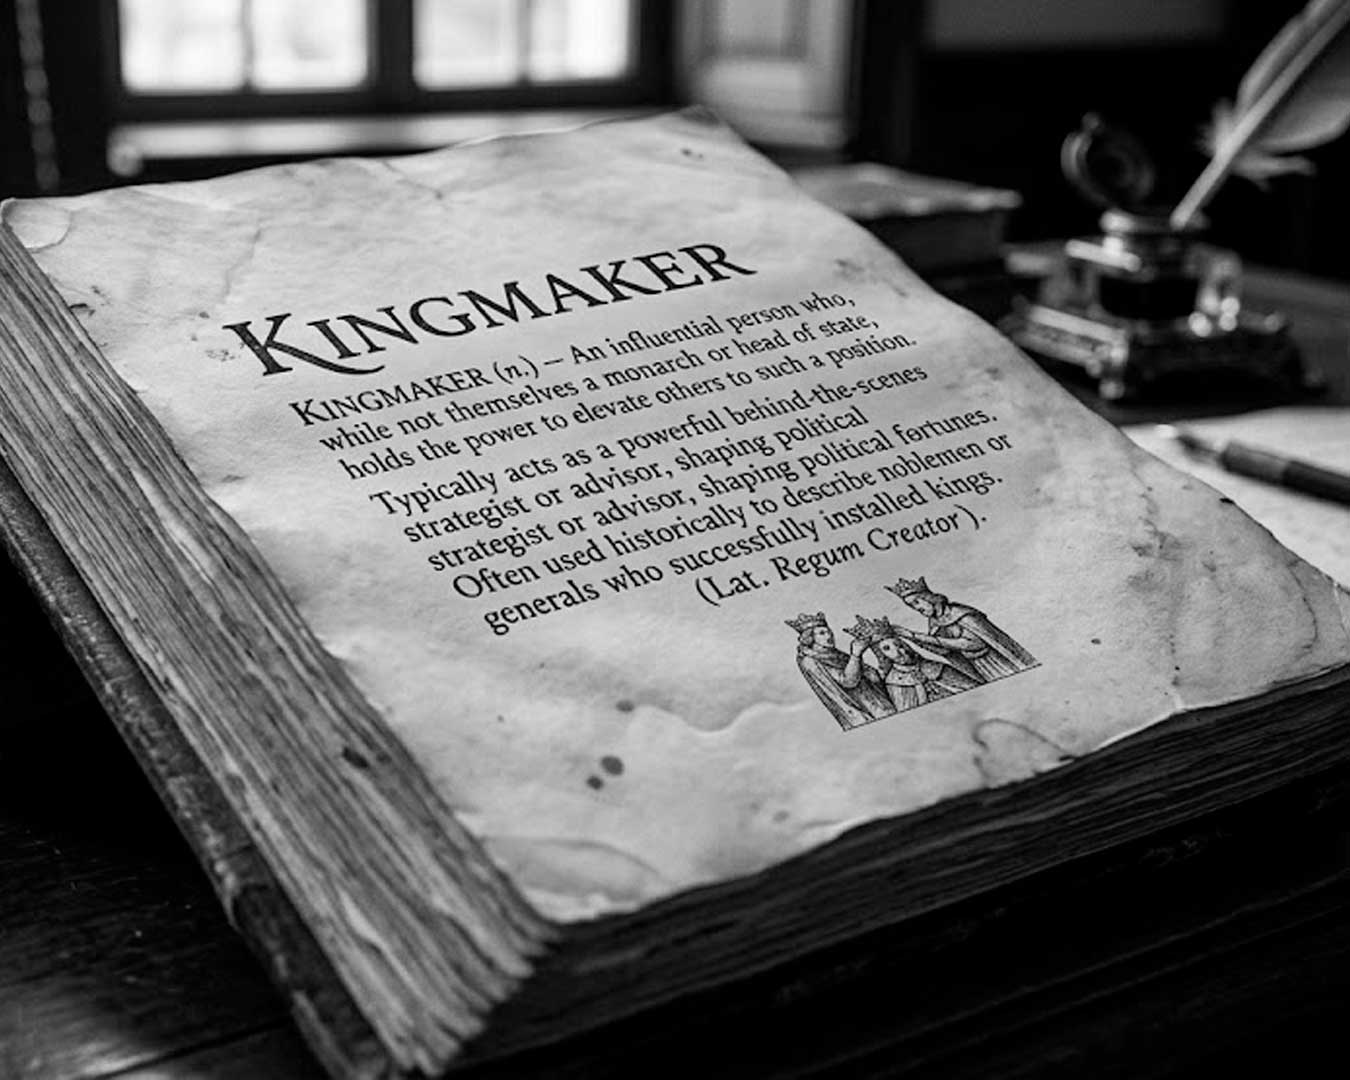 KINGMAKER
KINGMAKER (n.) – An influential person who,
while not themselves a monarch or head of state,
holds the power to elevate others to such a position.
Typically acts as a powerful behind-the-scenes
strategist or advisor, shaping political
strategist or advisor, shaping political fortunes.
Often used historically to describe noblemen or
generals who successfully installed kings.
(Lat. Regum Creator).